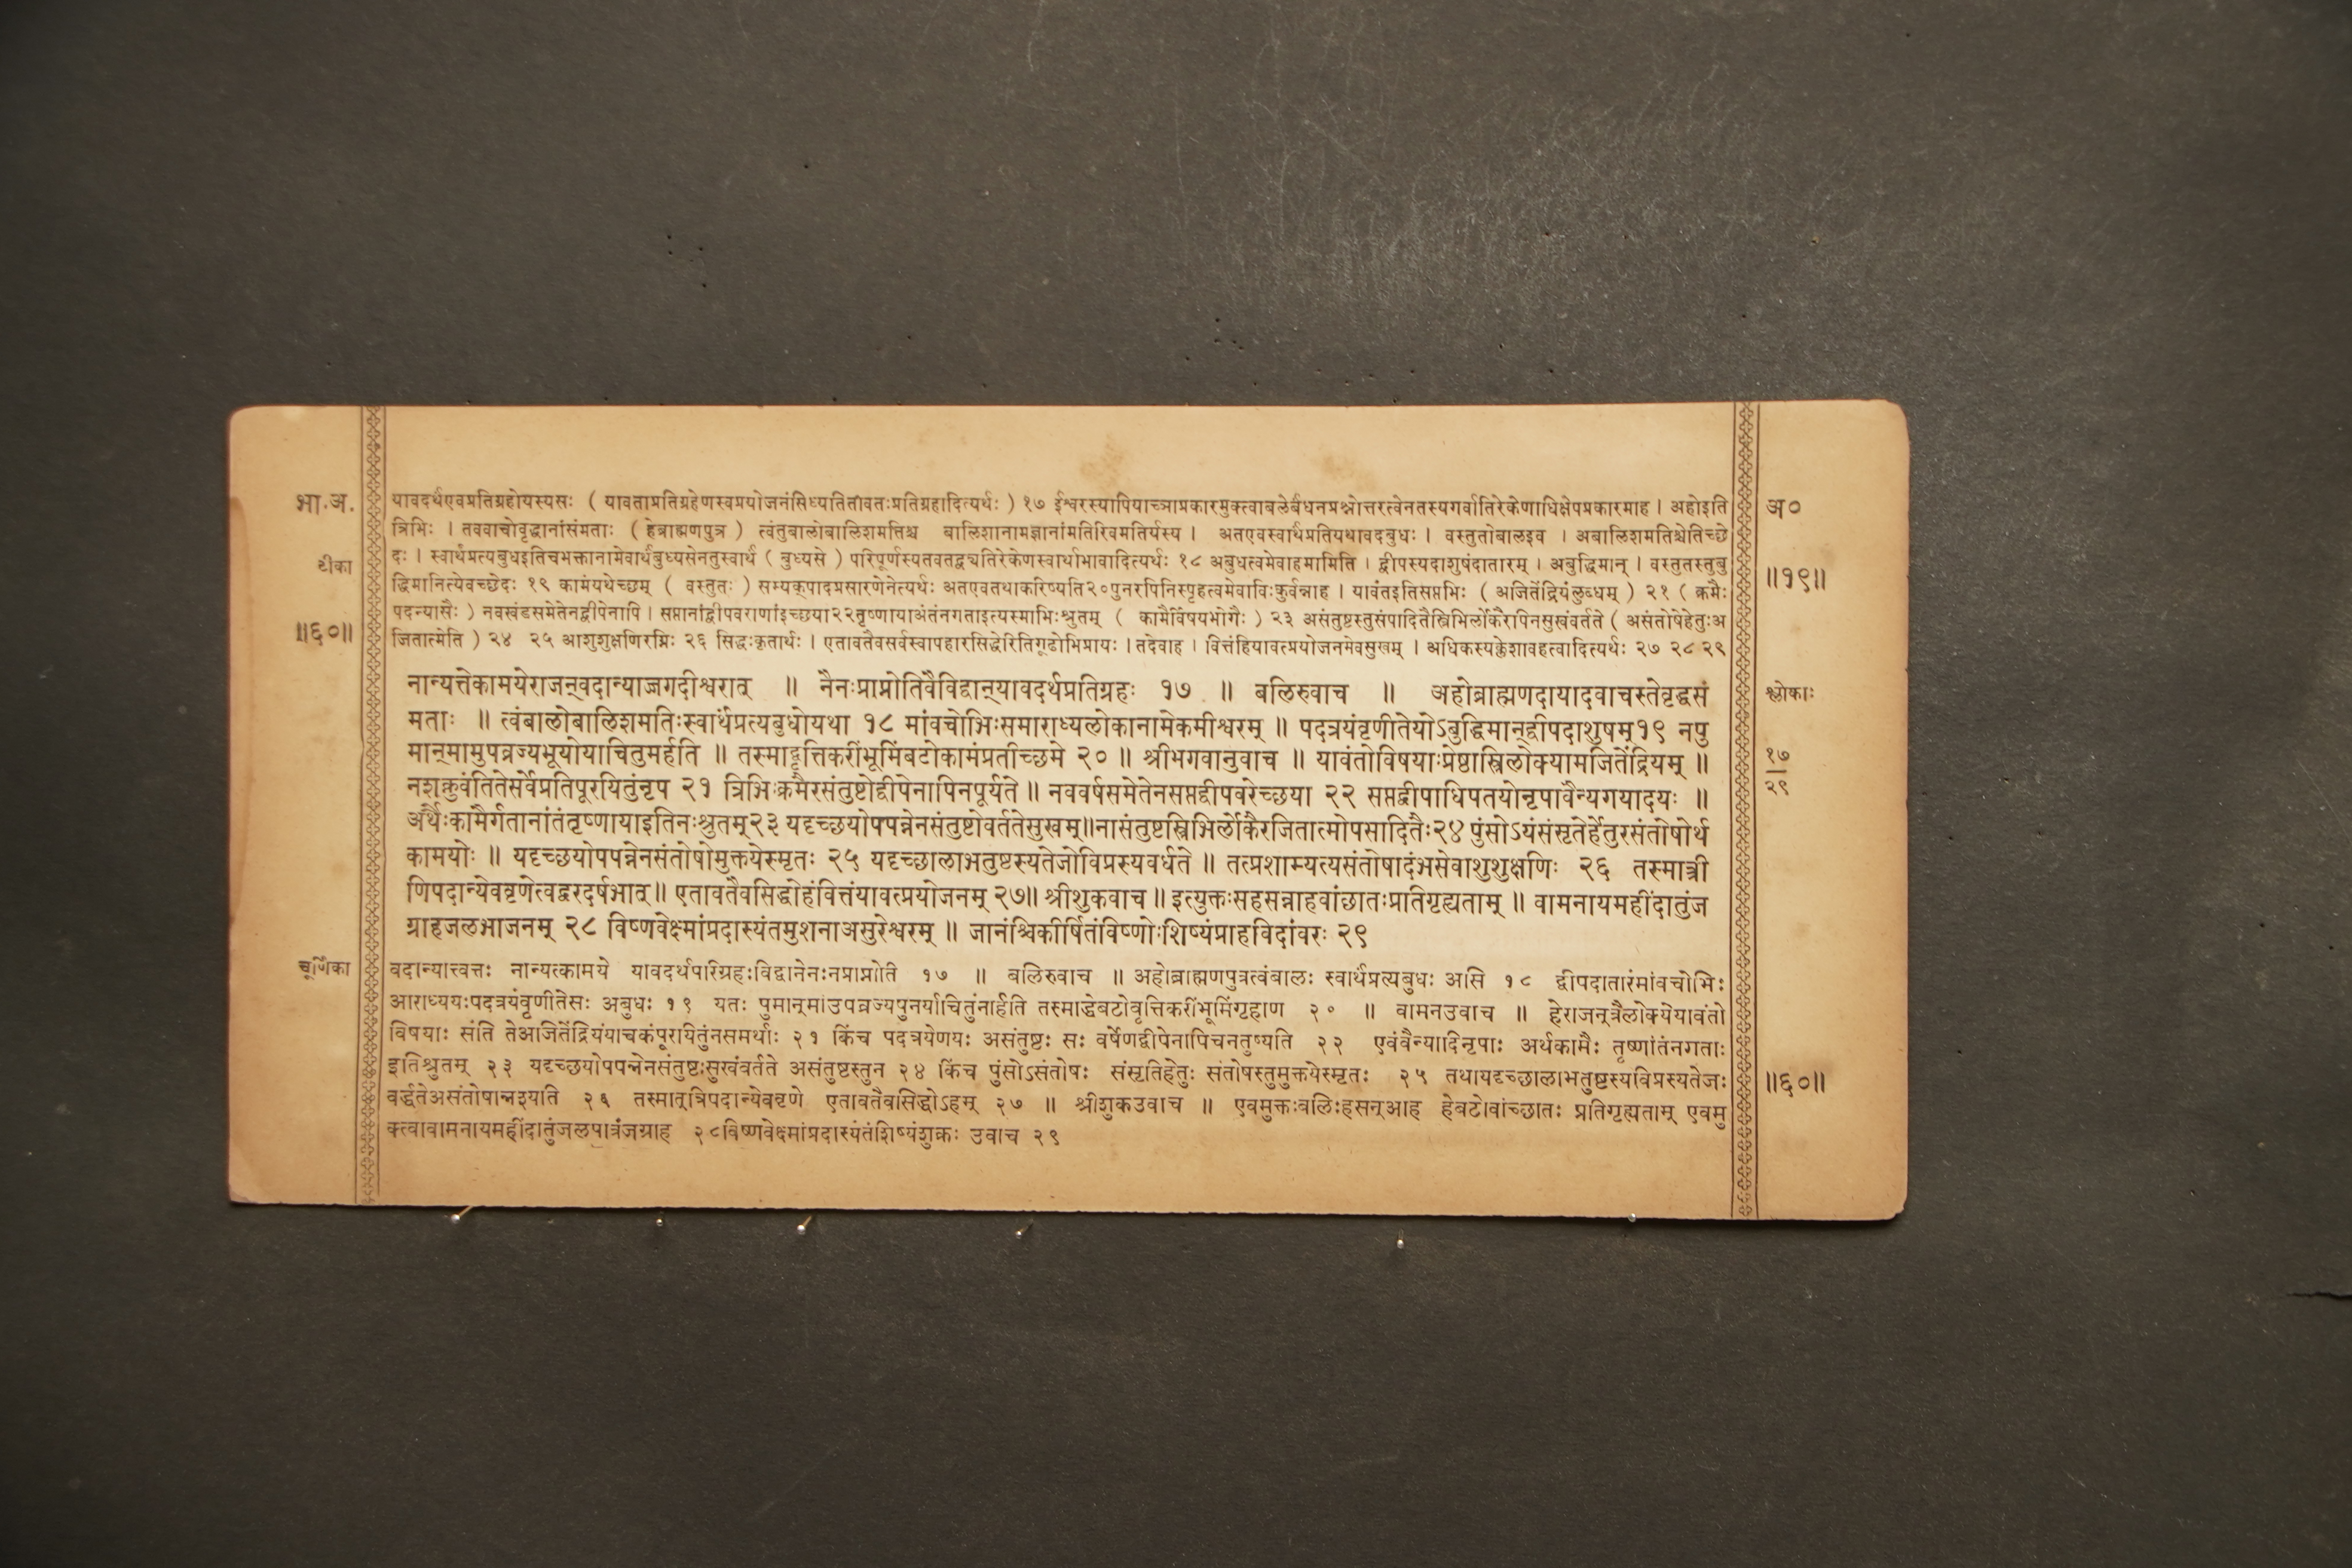 भा.अ.
टीका
॥६०॥
यावदर्थएवप्रतिग्रहोयस्यसः ( यावताप्रतिग्रहेणस्वप्रयोजनंसिध्यतितावतःप्रतिग्रहादित्यर्थः ) १७ ईश्वरस्यापियाच्ञाप्रकारमुक्त्वाबलेर्बंधनप्रश्नोत्तरत्वेनतस्यगर्वातिरेकेणाधिक्षेपप्रकारमाह । अहोइति
त्रिभिः । तववाचोवृद्धानांसंमताः ( हेब्राह्मणपुत्र ) त्वंतुबालोबालिशमत्तिश्च बालिशानामज्ञानांमतिरिवमतिर्यस्य । अतएवस्वार्थंप्रतियथावदबुधः । वस्तुतोबालइव । अबालिशमतिश्चेतिच्छे
दः । स्वार्थंप्रत्यबुधइतिचभक्तानामेवार्थंबुध्यसेनतुस्वार्थं ( बुध्यसे ) परिपूर्णस्यतवतद्व्यतिरेकेणस्वार्थाभावादित्यर्थः १८ अबुधत्वमेवाहमामिति । द्वीपस्यदाशुषंदातारम् । अबुद्धिमान् । वस्तुतस्तुबु
द्धिमानित्येवच्छेदः १९ कामंयथेच्छम् ( वस्तुतः ) सम्यक्पादप्रसारणेनेत्यर्थः अतएवतथाकरिष्यति२०पुनरपिनिस्पृहत्वमेवाविःकुर्वन्नाह । यावंतइतिसप्तभिः ( अजितेंद्रियंलुब्धम् ) २१ ( क्रमैः
पदन्यासैः ) नवखंडसमेतेनद्वीपेनापि । सप्तानांद्वीपवराणांइच्छया२२तृष्णायाअंतंनगताइत्यस्माभिःश्रुतम् ( कामैर्विषयभोगैः ) २३ असंतुष्टस्तुसंपादितैस्त्रिभिर्लोकैरपिनसुखंवर्तते ( असंतोषेहेतुःअ
जितात्मेति ) २४ २५ आशुशुक्षणिरग्निः २६ सिद्धःकृतार्थः । एतावतैवसर्वस्वापहारसिद्धेरितिगूढोभिप्रायः । तदेवाह । वित्तंहियावत्प्रयोजनमेवसुखम् । अधिकस्यक्लेशावहत्वादित्यर्थः २७ २८ २९
नान्यत्तेकामयेराजन्वदान्याज्जगदीश्वरात् ॥ नैनःप्राप्नोतिवैविद्वान्यावदर्थप्रतिग्रहः १७ ॥ बलिरुवाच ॥ अहोब्राह्मणदायादवाचस्तेवृद्धसं
मताः ॥ त्वंबालोबालिशमतिःस्वार्थंप्रत्यबुधोयथा १८ मांवचोभिःसमाराध्यलोकानामेकमीश्वरम् ॥ पदत्रयंवृणीतेयोऽबुद्धिमान्द्वीपदाशुषम्१९ नपु
मान्मामुपव्रज्यभूयोयाचितुमर्हति ॥ तस्माद्वृत्तिकरींभूमिंबटोकामंप्रतीच्छमे २० ॥ श्रीभगवानुवाच ॥ यावंतोविषयाःप्रेष्ठास्त्रिलोक्यामजितेंद्रियम् ॥
नशक्नुवंतितेसर्वेप्रतिपूरयितुंनृप २१ त्रिभिःक्रमैरसंतुष्टोद्वीपेनापिनपूर्यते ॥ नववर्षसमेतेनसप्तद्वीपवरेच्छया २२ सप्तद्वीपाधिपतयोनृपावैन्यगयादयः ॥
अर्थैःकामैर्गतानांतंतृष्णायाइतिनःश्रुतम्२३ यदृच्छयोपपन्नेनसंतुष्टोवर्ततेसुखम्॥नासंतुष्टस्त्रिभिर्लोकैरजितात्मोपसादितैः२४ पुंसोऽयंसंसृतेर्हेतुरसंतोषोर्थ
कामयोः ॥ यदृच्छयोपपन्नेनसंतोषोमुक्तयेस्मृतः २५ यदृच्छालाभतुष्टस्यतेजोविप्रस्यवर्धते ॥ तत्प्रशाम्यत्यसंतोषादंभसेवाशुशुक्षणिः २६ तस्मात्त्री
णिपदान्येववृणेत्वद्वरदर्षभात्॥ एतावतैवसिद्धोहंवित्तंयावत्प्रयोजनम् २७॥ श्रीशुकवाच ॥ इत्युक्तःसहसन्नाहवांछातःप्रतिगृह्यताम् ॥ वामनायमहींदातुंज
ग्राहजलभाजनम् २८ विष्णवेक्ष्मांप्रदास्यंतमुशनाअसुरेश्वरम् ॥ जानंश्चिकीर्षितंविष्णोःशिष्यंप्राहविदांवरः २९
चूर्णिका
वदान्यात्त्वत्तः नान्यत्कामये यावदर्थपरिग्रहःविद्वानेनःनप्राप्नोति १७ ॥ बलिरुवाच ॥ अहोब्राह्मणपुत्रत्वंबालः स्वार्थंप्रत्यबुधः असि १८ द्वीपदातारंमांवचोभिः
आराध्ययःपदत्रयंवृणीतेसः अबुधः १९ यतः पुमान्मांउपव्रज्यपुनर्याचितुंनार्हति तस्माद्धेबटोवृत्तिकरींभूमिंगृहाण २० ॥ वामनउवाच ॥ हेराजन्त्रैलोक्येयावंतो
विषयाः संति तेअजितेंद्रियंयाचकंपूरयितुंनसमर्थाः २१ किंच पदत्रयेणयः असंतुष्टः सः वर्षेणद्वीपेनापिचनतुष्यति २२ एवंवैन्यादिनृपाः अर्थकामैः तृष्णांतंनगताः
इतिश्रुतम् २३ यदृच्छयोपपन्नेनसंतुष्टःसुखंवर्तते असंतुष्टस्तुन २४ किंच पुंसोऽसंतोषः संसृतिहेतुः संतोषस्तुमुक्तयेस्मृतः २५ तथायदृच्छालाभतुष्टस्यविप्रस्यतेजः
वर्द्धतेअसंतोषान्नश्यति २६ तस्मात्त्रिपदान्येववृणे एतावतैवसिद्धोऽहम् २७ ॥ श्रीशुकउवाच ॥ एवमुक्तःबलिःहसन्आह हेबटोवांच्छातः प्रतिगृह्यताम् एवमु
क्त्वावामनायमहींदातुंजलपात्रंजग्राह २८विष्णवेक्ष्मांप्रदास्यंतंशिष्यंशुक्रः उवाच २९
अ०
॥१९॥
श्लोकाः
१७
२९
॥६०॥